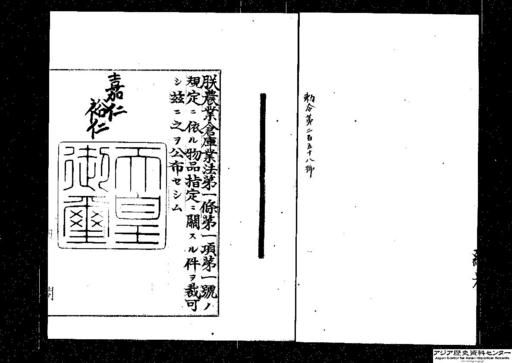 勅令第二百五十八號
朕農業倉庫業法第一條第一項第一號ノ
規定ニ依ル物品指定ニ關スル件ヲ裁可
シ玆ニ之ヲ公布セシム
嘉仁
裕仁
天皇御璽
アジア歴史資料センター
Japan Center for Asian Historical Records